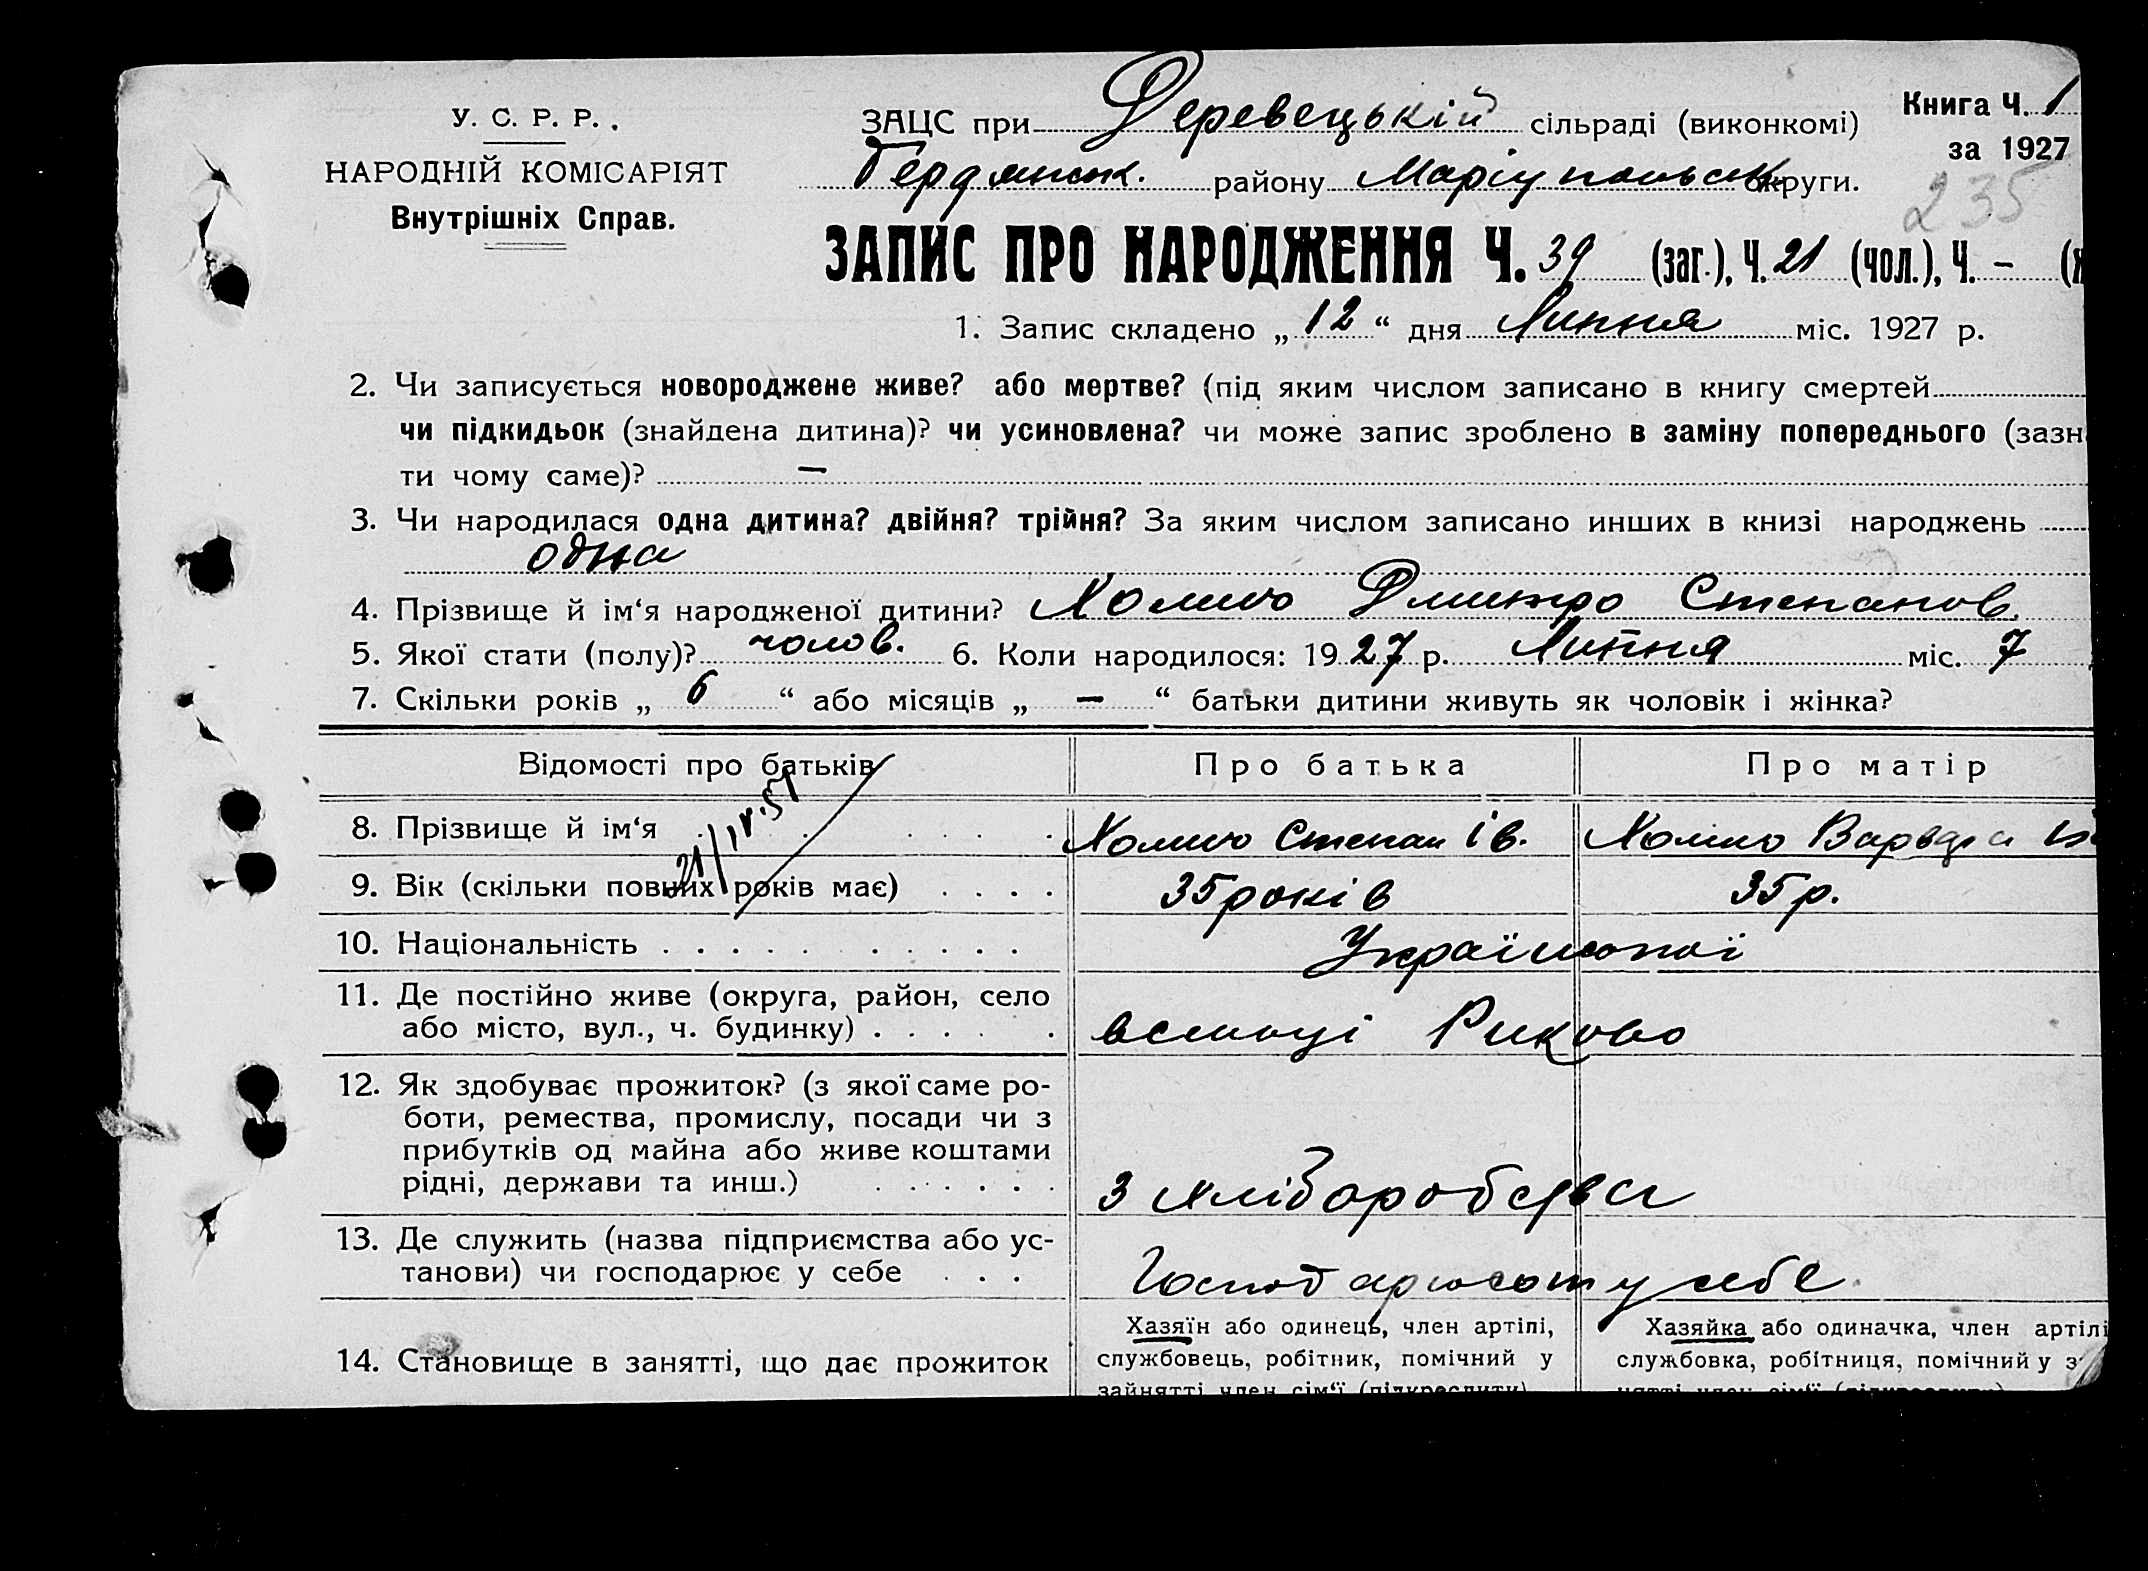 У. С. Р. Р.
НАРОДНІЙ КОМІСАРІЯТ
Внутрішніх Справ.
ЗАЦС при Деревецькій сільраді (виконкомі)
Бердянськ. району Маріупольськ округи.
Книга Ч. 1
за 1927
235
ЗАПИС ПРО НАРОДЖЕННЯ Ч. 39 (заг.), Ч. 21 (чол.), Ч. –
1. Запис складено „ 12 “ дня Липня міс. 1927 р.
2. Чи записується новороджене живе? або мертве? (під яким числом записано в книгу смертей
чи підкидьок (знайдена дитина)? чи усиновлена? чи може запис зроблено в заміну попереднього (зазн
ти чому саме)? —
3. Чи народилася одна дитина? двійня? трійня? За яким числом записано инших в книзі народжень
одна
4. Прізвище й ім‘я народженої дитини? Хомшо Дмитро Степанов.
5. Якої стати (полу)? чолов. 6. Коли народилося: 1927 р. Липня міс. 7
7. Скільки років „ 6 “ або місяців „ — “ батьки дитини живуть як чоловік і жінка?
Відомості про батьків Про батька Про матір
21/IV.51
8. Прізвище й ім‘я . . . . . . Степан Ів. Варвара
9. Вік (скільки повних років має) . . . . 35 років 35 р.
10. Національність . . . . . . . . . . . Української
11. Де постійно живе (округа, район, село
або місто, вул., ч. будинку) . . . . . . в селищі Риково
12. Як здобуває прожиток? (з якої саме ро-
боти, ремества, промислу, посади чи з
прибутків од майна або живе коштами
рідні, держави та инш.) . . . . . . . З хліборобства
13. Де служить (назва підприємства або ус-
танови) чи господарює у себе . . . Господарюють у себе
14. Становище в занятті, що дає прожиток
Хазяїн або одинець, член артілі,
службовець, робітник, помічний у
зайнятті член сім‘ї (підкреслити)
Хазяйка або одиначка, член артілі
службовка, робітниця, помічний у з
нятті член сім‘ї (підкреслити)